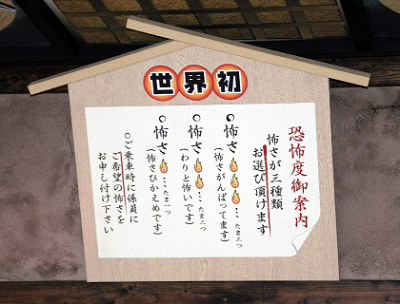 世界初
恐怖度御案内
怖さが三種類
お選び頂けます
○怖さ🔥🔥🔥…たま三つ
(怖さがんばってます)
○怖さ🔥🔥…たま二つ
(わりと怖いです)
○怖さ🔥…たま一つ
(怖さひかえめです)
○ご乗車時に係員に
ご希望の怖さを
お申し付け下さい